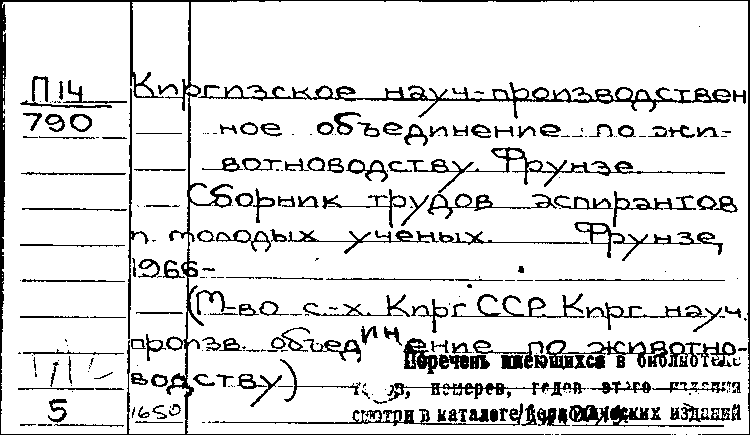 П14
790
Киргизское науч.-производствен
ное объединение по жи-
вотноводству. Фрунзе.
Сборник трудов аспирантов
и молодых ученых. Фрунзе,
1966-
(М-во с.-х. Кирг ССР. Кирг. науч.
произв. объединение по животно-
водству)
Перечень имеющихся в библиотеке
томов, номеров, годов этого издания
смотри в каталоге периодических изданий
5
1650